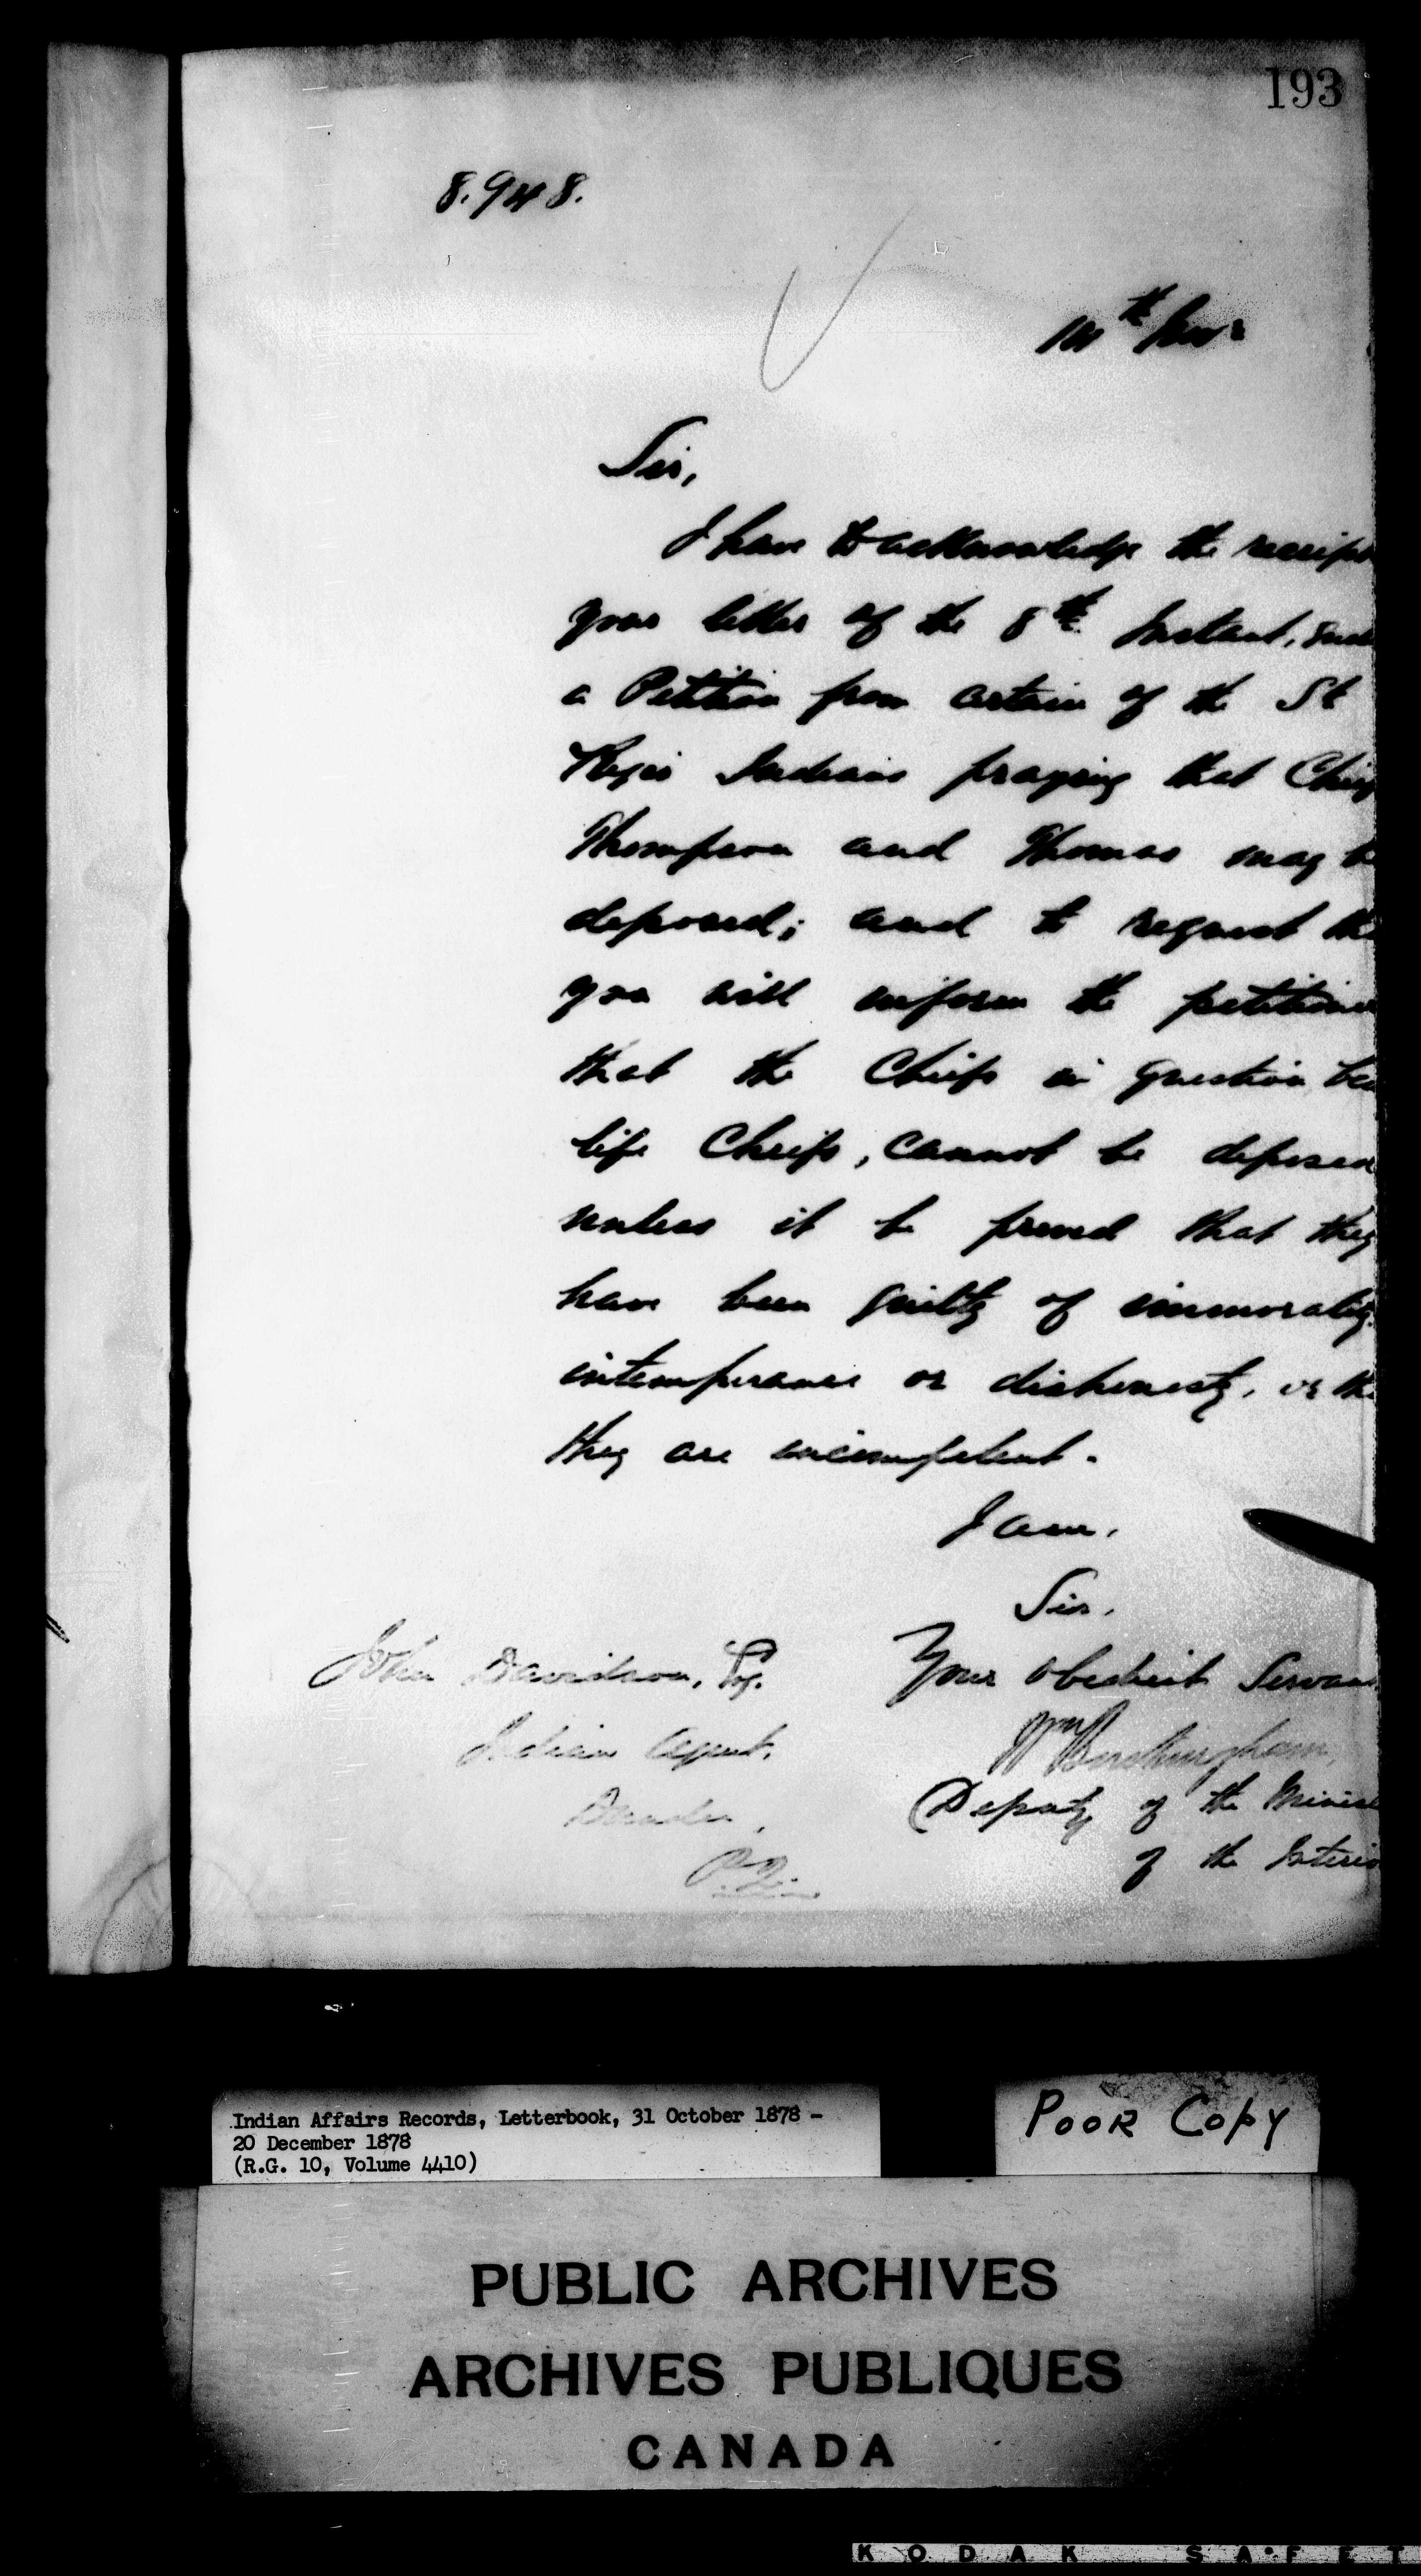 193
8.948.
14th Novr
Sir,
I have to acknowledge the receipt
your letter of the 8th Instant,
a Petition from certain of the St
Regis Indians praying that Chiefs
Thompson and Thomas may be
deposed; and to request tha
you will inform the petitioner
that the Chiefs in question bei
life Chiefs, cannot be deposed
unless it be proved that they
have been guilty of immorality,
intemperance or dishonesty, or tha
they are incompetent.
I am,
Sir,
Your obedient Servant
Wm Buckingham,
Deputy of the Minist
of the Interio
John Davidson, Esq.
Indian Agent,
Dundee,
P.Q.
Indian Affairs Records, Letterbook, 31 October 1878 –
20 December 1878
(R.G. 10, Volume 4410)
POOR COPY
PUBLIC ARCHIVES
ARCHIVES PUBLIQUES
CANADA
KODAK SAFET